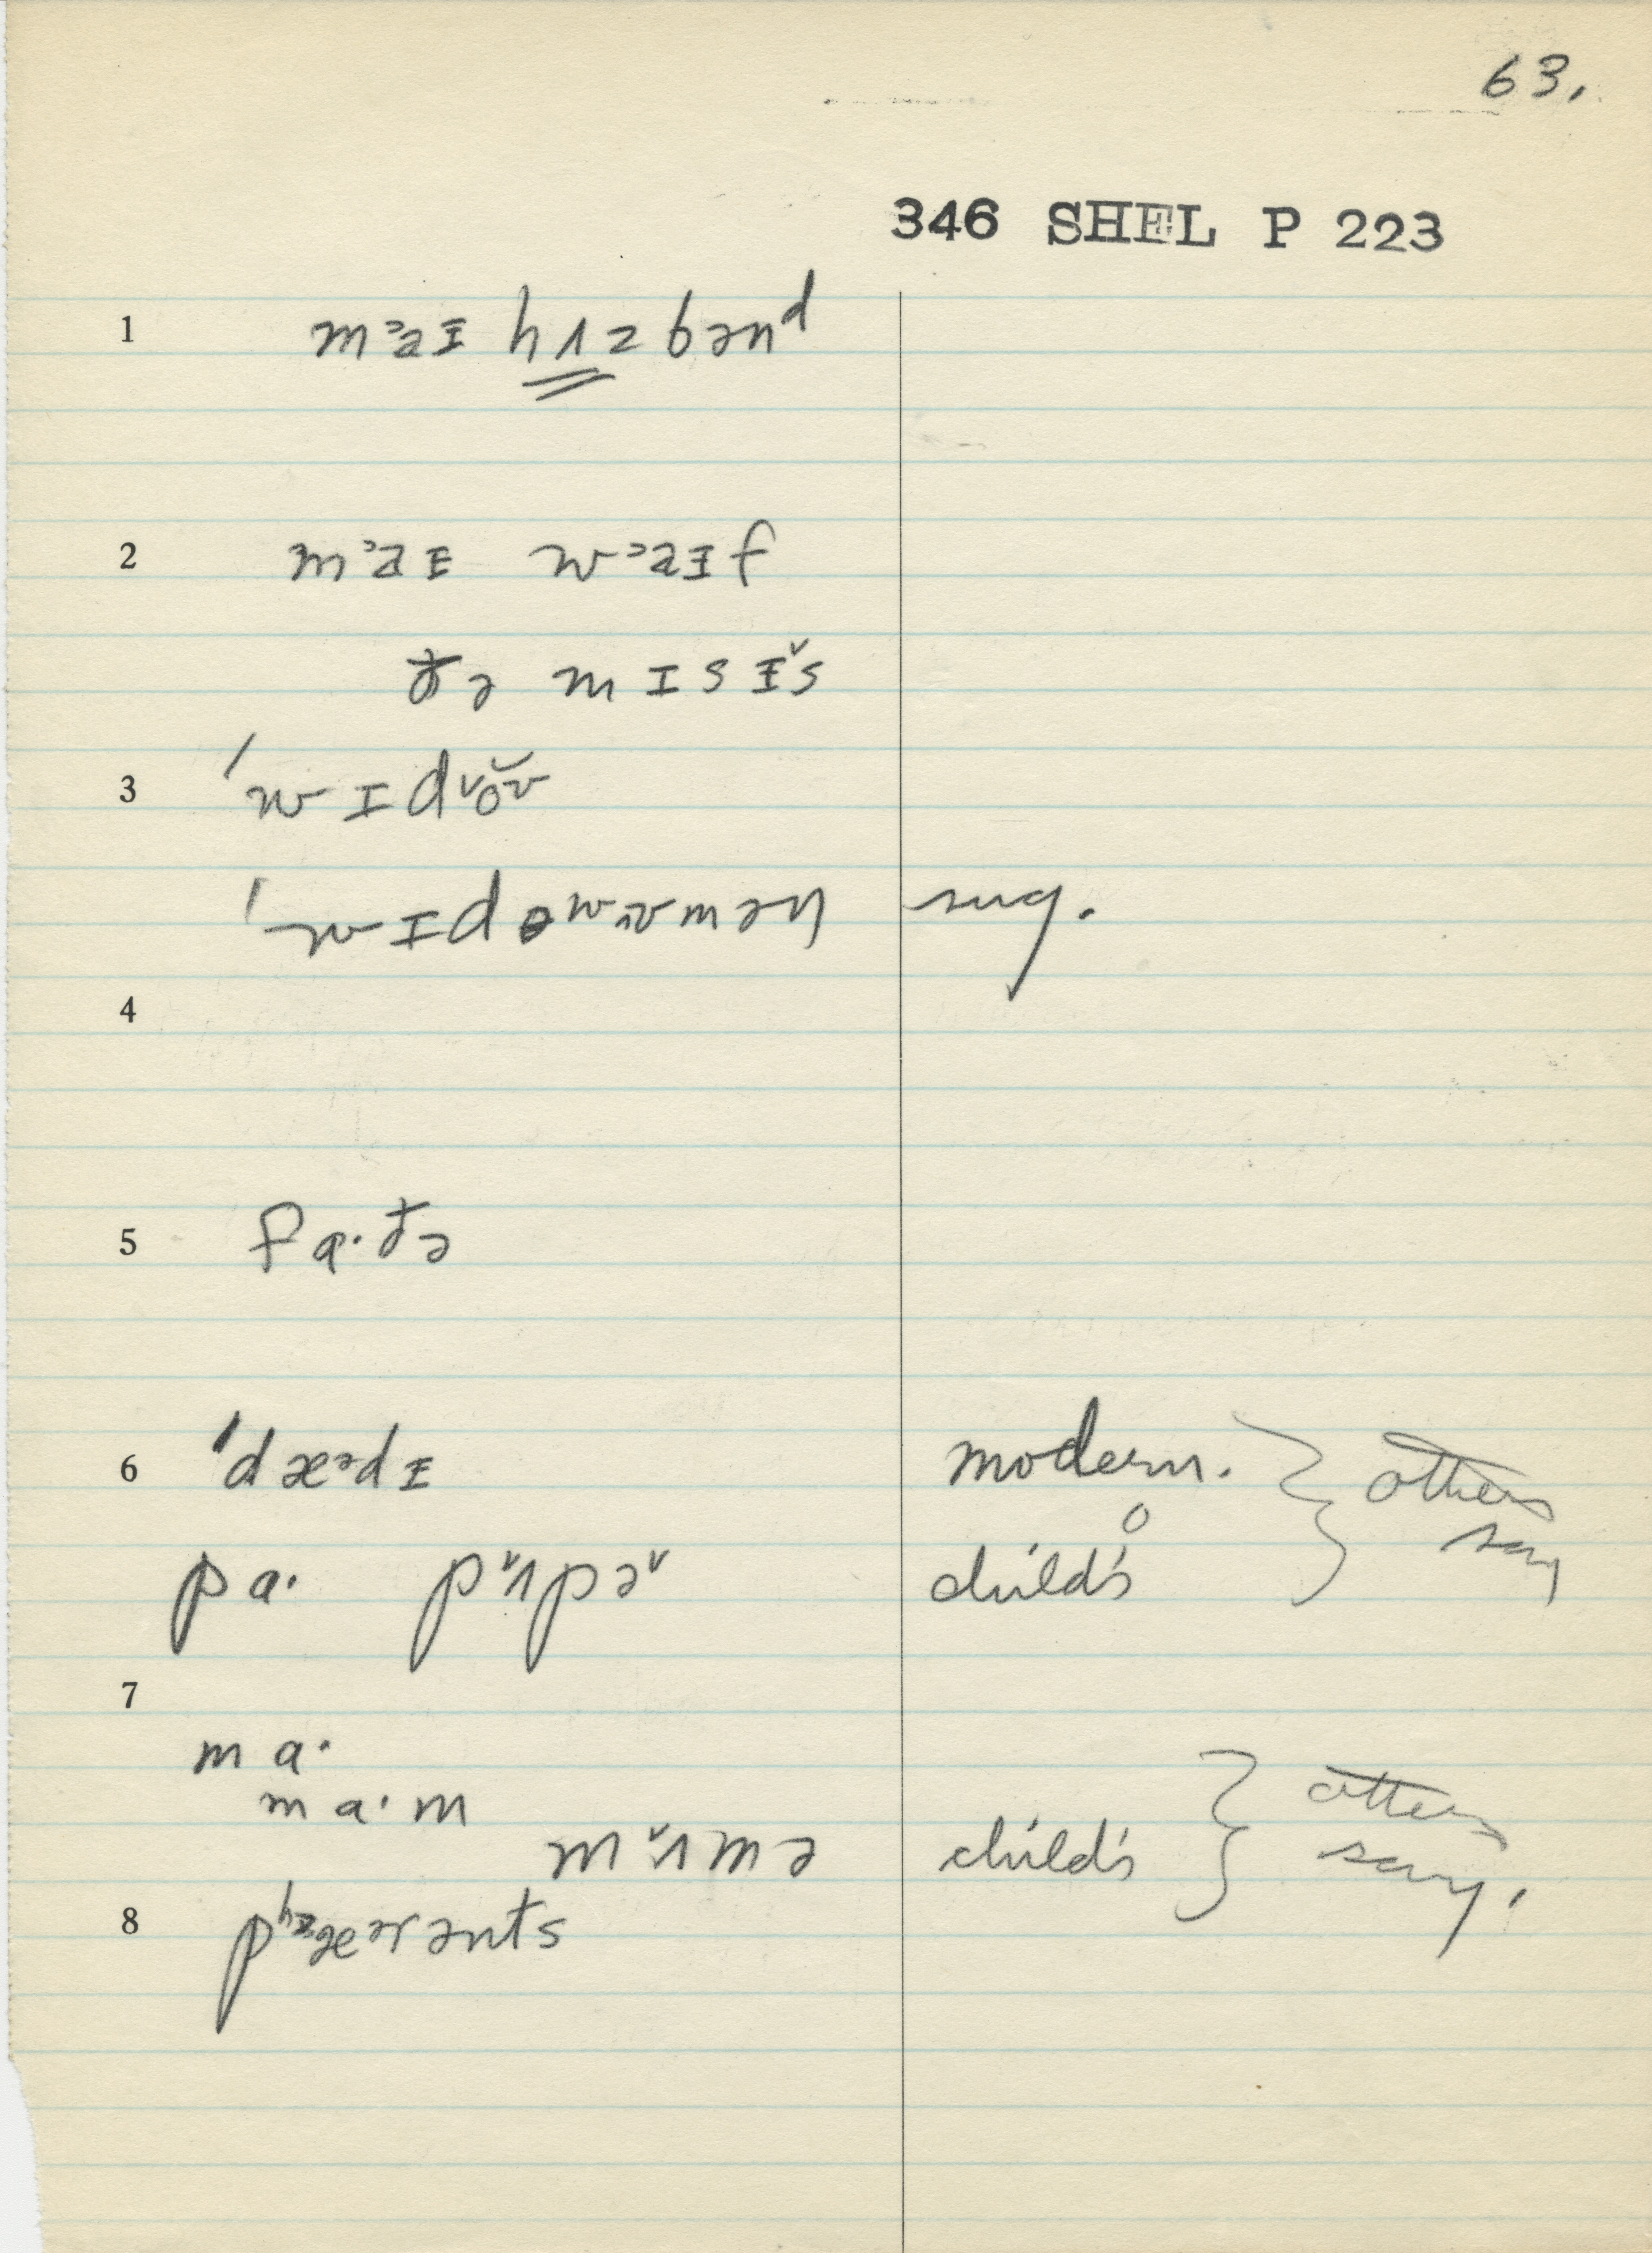 63.
346 SHEL P 223
1 mᵓaᵻ hʌzbənᵈ
2 mᵓaᵻ wᵓaᵻf
ðə mɪsᵻ˅s
3 ˈwɪd˅ŏʊ
ˈwɪdəwʊmən sug.
4
5 fɑ·ðə
6 ˈdæᵊdᵻ modern. } others say
pɑ· p˅ʌpə˅ child's
7
ma·
ma·m
m˅ʌmə child's } others say,
8 pʰæᵊrənts